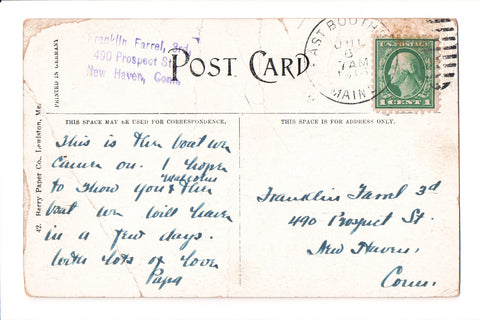 Franklin Farrel, 3rd
490 Prospect St
New Haven, Conn.
POST CARD
EAST BOOTHB
JUL
6
7AM
MAINE
U.S. POSTAGE
1 CENT 1
PRINTED IN GERMANY
42. Berry Paper Co., Lewiston, Me.
THIS SPACE MAY BE USED FOR CORRESPONDENCE.
THIS SPACE IS FOR ADDRESS ONLY.
This is the boat we
came on. I hope
Malcolm
to show you & the
boat we will have
in a few days.
With lots of love
Papa
Franklin Farrel 3d
490 Prospect St.
New Haven,
Conn.